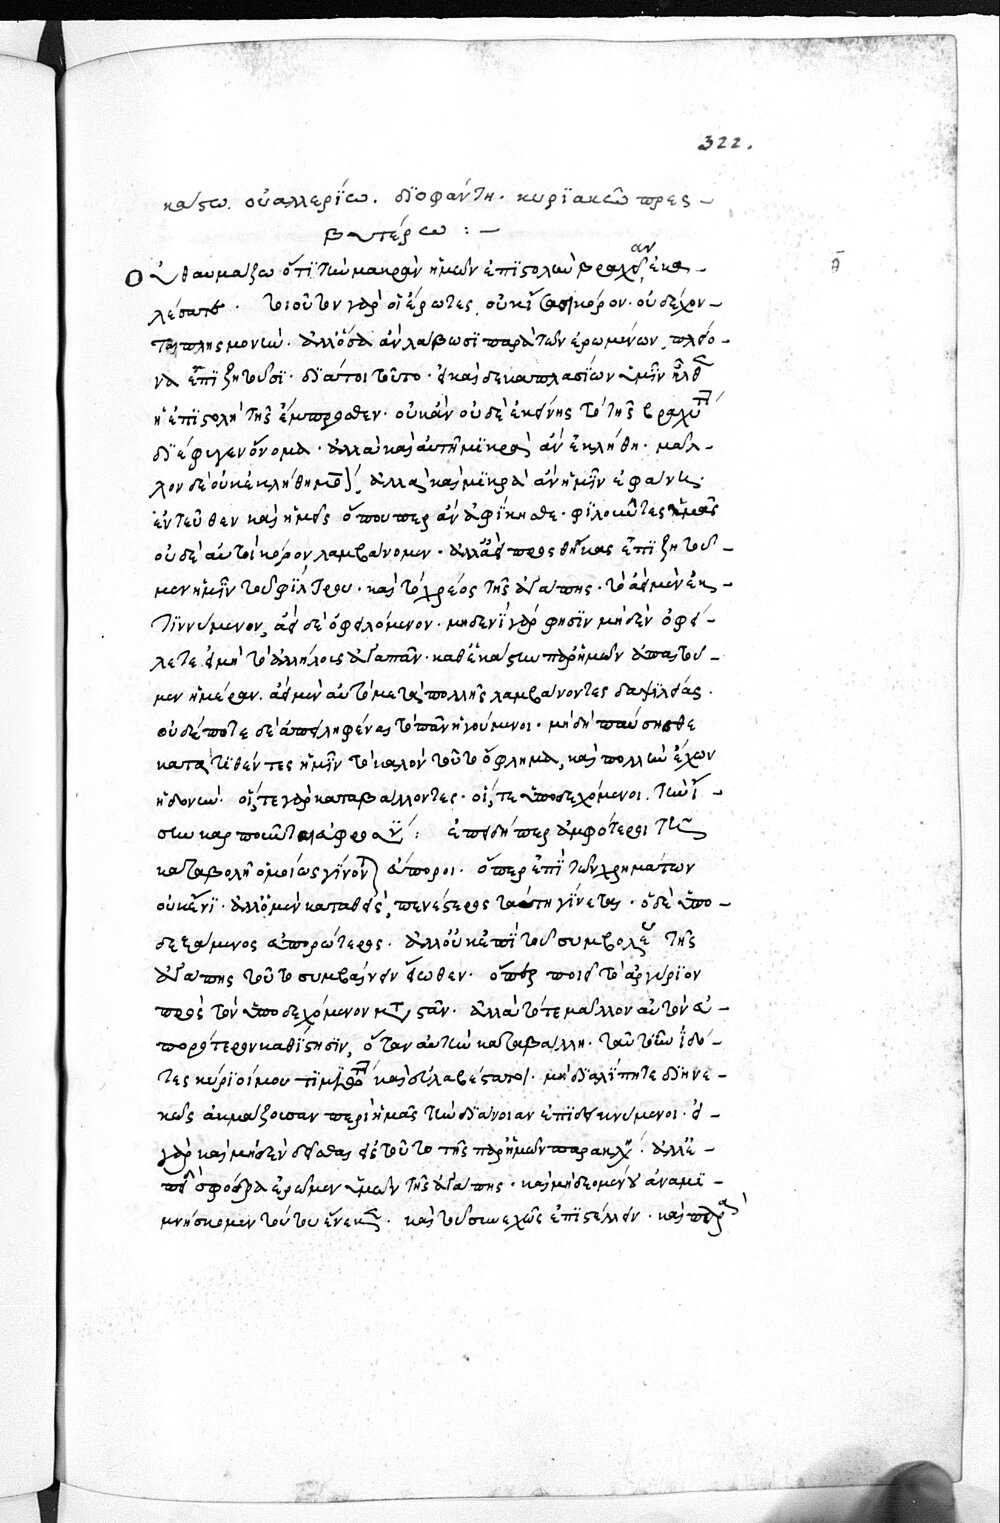 322.
κάστω. οὐαλλερίω. διοφάντη. κυριακῶ πρεσ-
βυτέρω :-
Οὐ θαυμάζω ὅτι τὴν μακρὰν ἡμῶν ἐπιστολὴν βραχεῖαν ἐκα-
λέσατε. τοιοῦτον γὰρ οἱ ἐρῶντες, οὐκ ἴσασι κόρον. οὐ δέχον-
ται πλησμονήν. ἀλλ' ὅσα ἂν λάβωσι παρὰ τῶν ἐρωμένων, πλείο-
να ἐπιζητοῦσι. διάτοι τοῦτο. εἰ καὶ δεκαπλασίων ὑμῖν ἦλθεν
ἡ ἐπιστολὴ τῆς ἔμπροσθεν. οὐκ ἂν οὐδὲ ἐκείνης τὸ τῆς βραχύτητος
διέφυγεν ὄνομα. ἀλλὰ καὶ αὐτὴ μικρὰ ἂν ἐκλήθη. μᾶλ-
λον δὲ οὐκ ἐκλήθη μόνον, ἀλλὰ καὶ μικρὰ ἂν ὑμῖν ἐφάνη.
ἐντεῦθεν καὶ ἡμεῖς ὅπουπερ ἂν ἀφίκησθε. φιλοῦντες ὑμᾶς
οὐδὲ αὐτοὶ κόρον λαμβάνομεν. ἀλλ' ἀεὶ προσθήκας ἐπιζητοῦ-
μεν ἡμῖν τοῦ φίλτρου. καὶ τὸ χρέος τῆς ἀγάπης. τὸ ἀεὶ μὲν ἐκ-
τιννύμενον, ἀεὶ δὲ ὀφειλόμενον. μηδενὶ γὰρ φησὶν μηδὲν ὀφεί-
λετε εἰ μὴ τὸ ἀλλήλους ἀγαπᾶν. καθ' ἑκάστην παρ' ὑμῶν ἀπαιτοῦ-
μεν ἡμέραν. ἀεὶ μὲν αὐτὸ μετὰ πολλῆς λαμβάνοντες δαψιλείας.
οὐδέποτε δὲ ἀπειληφέναι τὸ πᾶν ἡγούμενοι. μὴ δὴ παύσησθε
κατατιθέντες ἡμῖν τὸ καλὸν τοῦτο ὄφλημα, καὶ πολλὴν ἔχον
ἡδονήν. οἵ, τε γὰρ καταβάλλοντες. οἵ, τε ὑποδεχόμενοι. τὴν ἴ-
σην καρποῦνται εὐφροσύνην: ἐπειδήπερ ἀμφότεροι τῇ
καταβολῇ ὁμοίως γίνονται εὔποροι. ὅπερ ἐπὶ τῶν χρημάτων
οὐκ ἔνι. ἀλλ' ὁ μὲν καταθείς, πενέστερος ταύτη γίνεται. ὁ δὲ ὑπο-
δεξάμενος εὐπορώτερος. ἀλλ' οὐκ ἐπὶ τοῦ συμβολαίου τῆς
ἀγάπης τοῦτο συμβαίνειν εἴωθεν. ὅπερ ποιεῖ τὸ ἀργύριον
πρὸς τὸν ὑποδεχόμενον μεταστάν. ἀλλὰ τότε μᾶλλον αὐτὸν εὐ-
πορώτερον καθίστησιν, ὅταν αὐτὴν καταβάλλη. ταῦτ' οὖν εἰδό-
τες κύριοί μου τιμιώτατοι καὶ εὐλαβέστατοι. μὴ διαλίπητε διηνε-
κῶς ἀκμάζουσαν περὶ ἡμᾶς τὴν διάνοιαν ἐπιδεικνύμενοι. εἰ
γὰρ καὶ μηδὲν δεῖσθαι εἰς τοῦτο τῆς παρ' ἡμῶν παρακλήσεως. ἀλλ' ἐ-
πεὶ σφόδρα ἐρῶμεν ὑμῶν τῆς ἀγάπης. καὶ μὴ δεομένους ἀναμι-
μνήσκομεν τούτου ἕνεκεν. καὶ τοῦ συνεχῶς ἐπιστέλλειν. καὶ περὶ